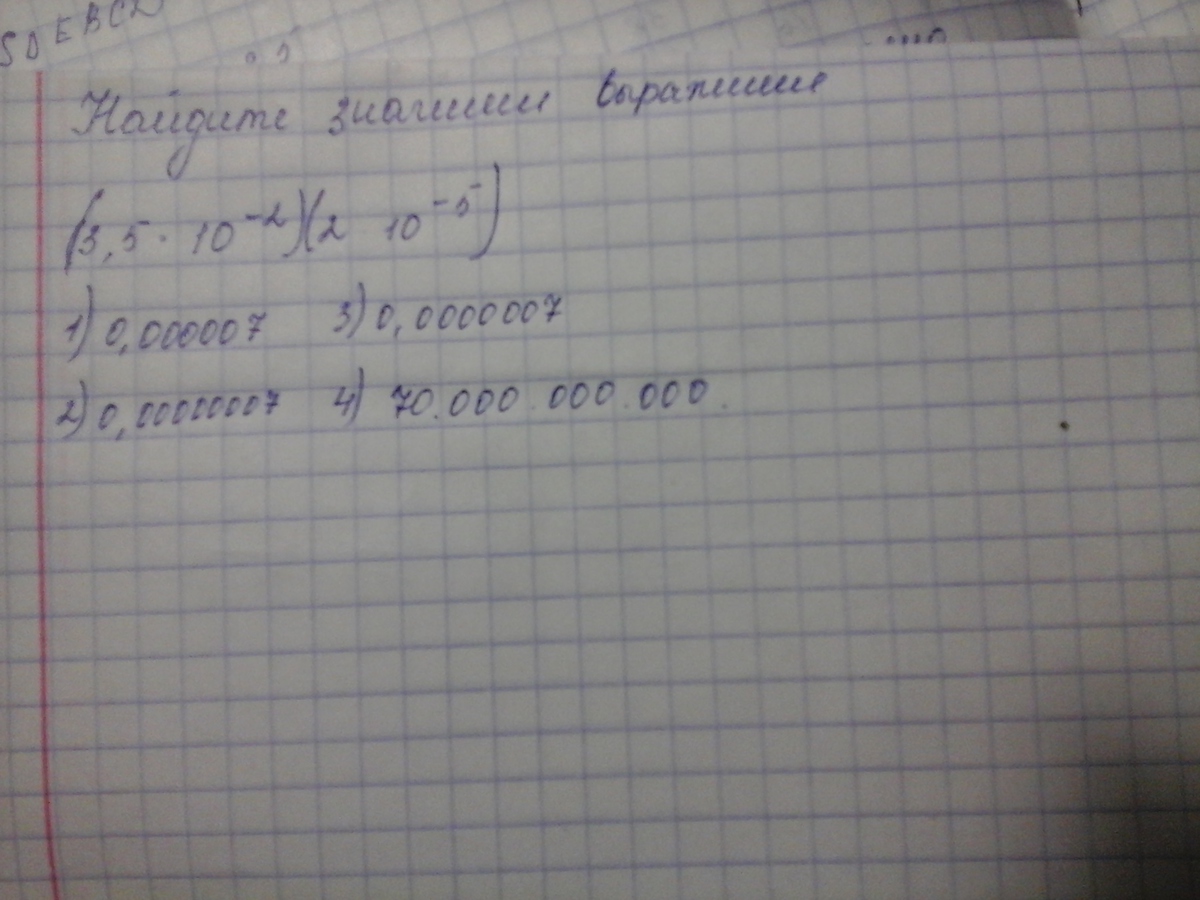 SDEBC
Найдите значении выражение
(3,5 · 10⁻²)(2 10⁻⁵)
1) 0,000007 3) 0,0000007
2) 0,00000007 4) 70.000.000.000.